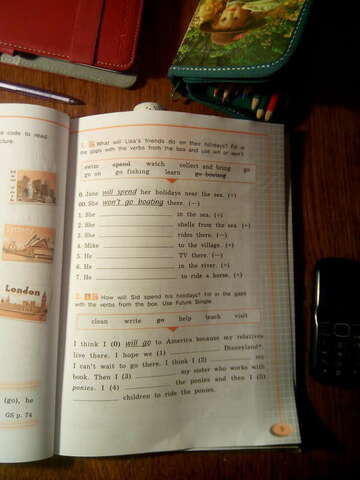 e code to read
cture.
Sydney
London
(go), he
GS p. 74
1. What will Lisa's friends do on their holidays? Fill in
the gaps with the verbs from the box and use will or won't.
swim spend watch collect and bring go
go on go fishing learn go boating
0. Jane will spend her holidays near the sea. (+)
00. She won't go boating there. (—)
1. She in the sea. (+)
2. She shells from the sea. (+)
3. She rides there. (—)
4. Mike to the village. (+)
5. He TV there. (—)
6. He in the river. (+)
7. He to ride a horse. (+)
2. How will Sid spend his holidays? Fill in the gaps
with the verbs from the box. Use Future Simple.
clean write go help teach visit
I think I (0) will go to America because my relatives
live there. I hope we (1) Disneyland.
I can't wait to go there. I think I (2) my
book. Then I (3) my sister who works with
ponies. I (4) the ponies and then I (5)
children to ride the ponies.